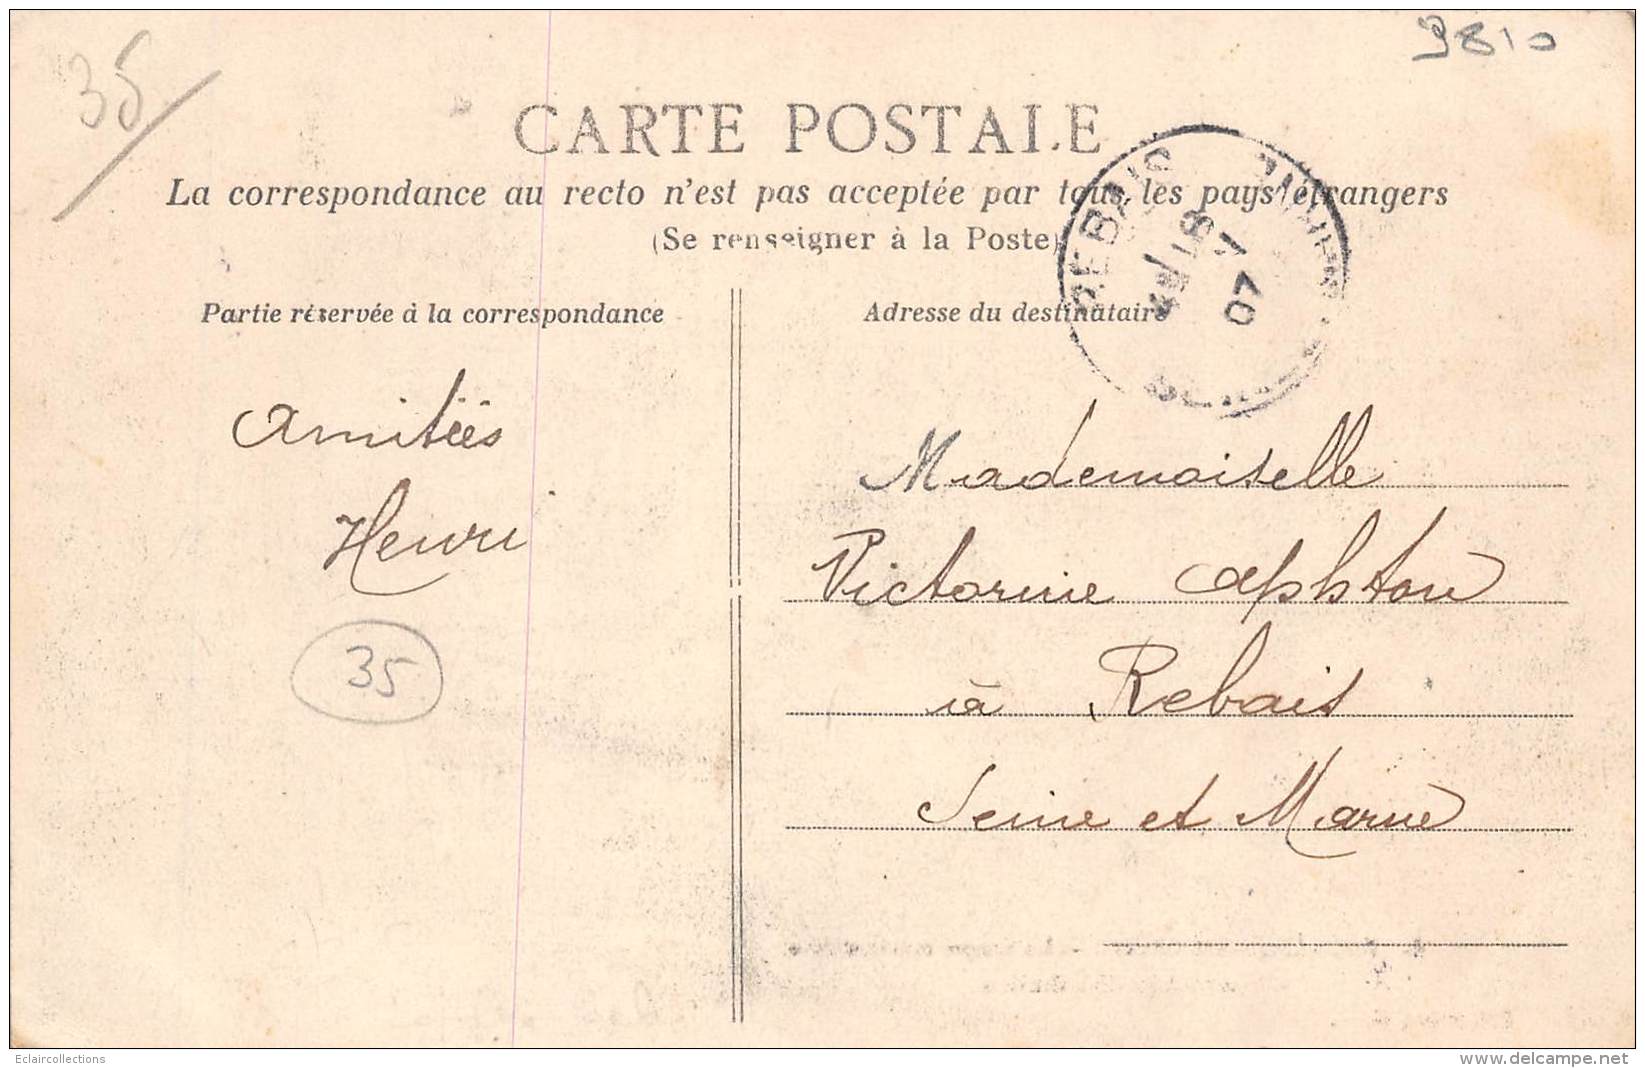 35
9810
CARTE POSTALE
La correspondance au recto n'est pas acceptée par tous les pays étrangers
(Se renseigner à la Poste)
REBAIS
18
07
Partie réservée à la correspondance
Adresse du destinataire
Amitiés
Henri
35
Mademoiselle
Victorine
à Rebais
Seine et Marne
Eclaircollections
www.delcampe.net